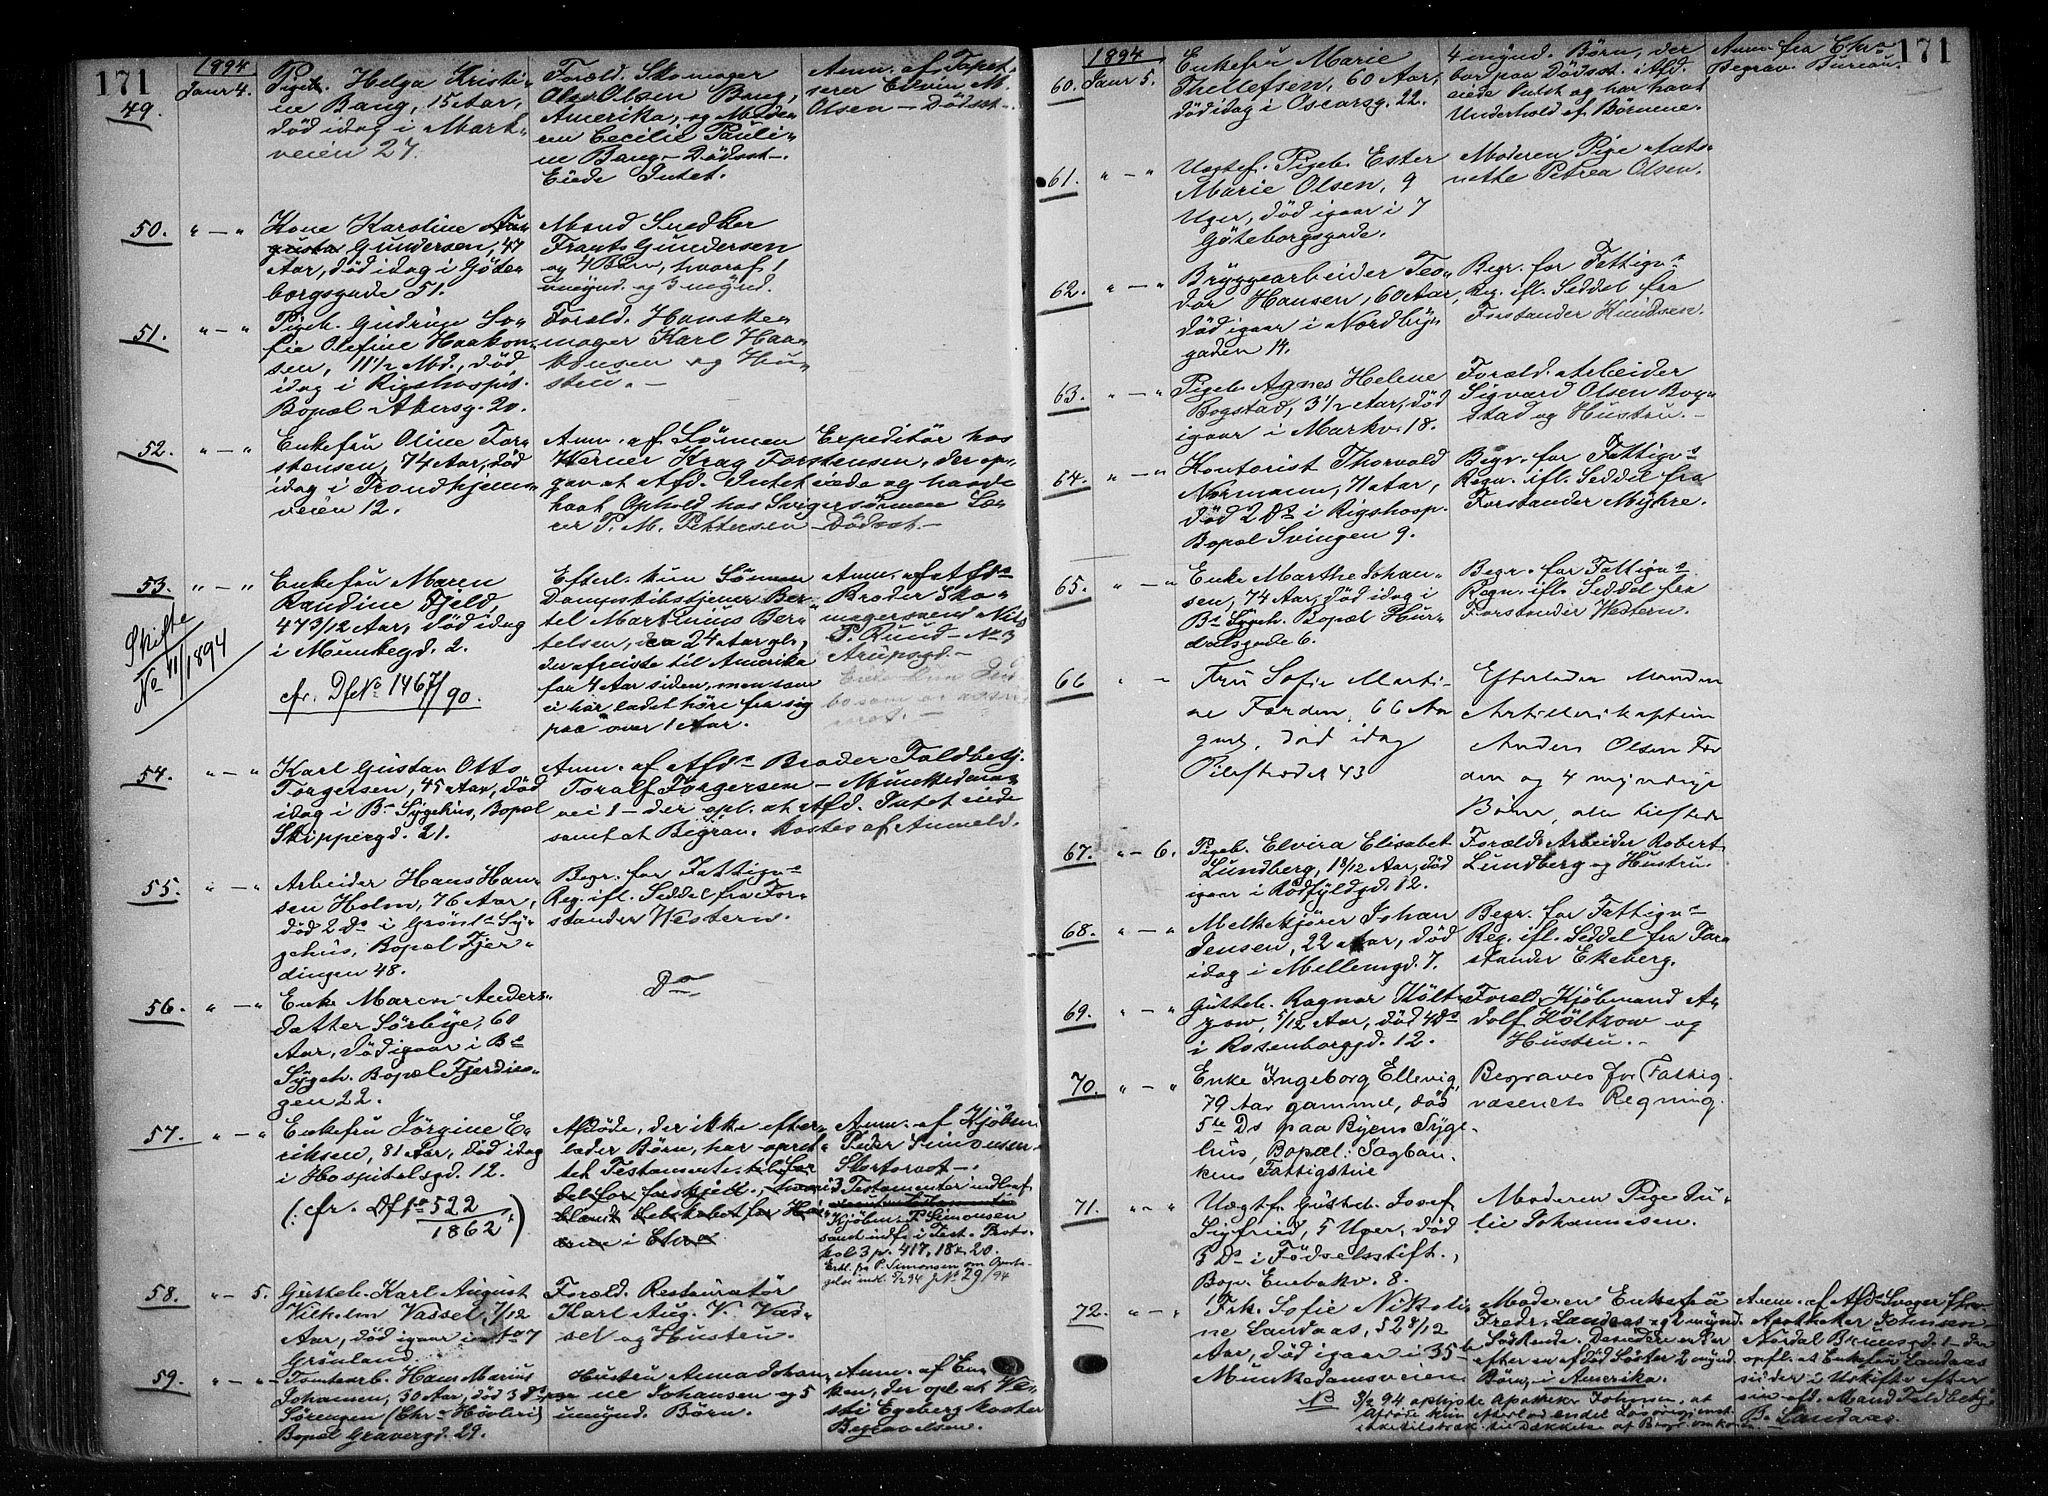 171
1894
49.
Janr 4.
Pige. Helga Kristi-
ne Bang, 15 Aar,
død idag i Mark-
veien 27.
Foræld. Skomager
Ole Olsen Bang,
Amerika, og Mode-
ren Cecilie Pauli-
ne Bang - Dödsst.
Eiede Intet.
Anm. af Tapet-
serer Edvin M.
Olsen - Dødsst.
50.
" — "
Kone Karoline Au-
gusta Gundersen, 47
Aar, død idag i Göte-
borgsgade 51.
Mand Snedker
Frants Gundersen
og 4 Børn, hvoraf 1
umynd. og 3 mynd.
51.
" — "
Pigeb. Gudrun So-
fie Olefine Haakon-
sen, 11 1/2 Md., død
idag i Rigshospit.
Bopæl Akersg. 20.
Foræld. Hanske-
mager Karl Haa-
konsen og Hu-
stru. —
52.
" — "
Enkefru Oline Tor-
stensen, 74 Aar, død
idag i Trondhjems-
veien 12.
Anm. af Sønnen Expeditör hos
Werner Krag Torstensen, der op-
gav at Afd. Intet eiede og havde
havt Ophold hos Svigersønnen Læ-
rer P. M. Pettersen - Dødsst. -
53.
" — "
Skifte
No 11/1894
Enkefru Maren
Randine Fjeld,
47 3/12 Aar, død idag
i Munkegd. 2.
cfr. Df No 1467/90.
Efterl. kun Sønnen
Dampskibstjener Ber-
tel Martinius Ber-
telsen, ca 24 Aar gl.,
der afreiste til Amerika
for 4 Aar siden, men som
ei har ladet høre fra sig
paa over 1 Aar.
Anm. af Afds
Broder Sko-
magersvend Nils
P. Rund - No 3
Arupsgd. -
54.
" — "
Karl Gustav Otto
Torgersen, 45 Aar, død
idag i Bs Sygehus, Bopæl
Skippergd. 21.
Anm. af Afds Broder Toldbetj.
Toralf Torgersen - Munkedams-
vei 1 - der opl. at Afd. Intet eiede
samt at Begrav. kostes af Anmeld.
55.
" — "
Arbeider Hans Han-
sen Holm, 76 Aar,
død 2 Ds i Grönls Sy-
gehus, Bopæl Fjer-
dingen 48.
Begr. for Fattigvs
Reg. ifl. Seddel fra For-
stander Western.
56.
" — "
Enke Maren Anders-
datter Sørbye, 60
Aar, død igaar i Bs
Sygeh. Bopæl Fjerdin-
gen 22.
Do
57.
" — "
Enkefru Jørgine E-
riksen, 81 Aar, død idag
i Hospitalsgd. 12.
(: cfr. Df No 522/1862 :)
Afdøde, der ikke efter-
lader Børn, har opret-
tet Testamente
Anm. af Kjøbm.
Peder Simonsen
Stortorvet -.
3 Testamenter indlev.
Kjøbm. P. Simonsen
samt indf. i Test. Proto-
kol 3 p. 417, 18 & 20.
Erkl. fra P. Simonsen om Overta-
gelse indl. 5/2 94 J No 29/94
58.
" — 5.
Gutteb. Karl August
Vilhelm Vassel, 7/12
Aar, død igaar i No 7
Grönland.
Foræld. Restauratör
Karl Aug. V. Vas-
sel og Hustru.
59.
" — "
Tomtearb. Hans Marius
Johansen, 30 Aar, død 3 Ds paa
Sørengen (Chra Høvleri)
Bopæl Gravergd. 29.
Hustru Anna Johan-
ne Johansen og 5
umynd. Børn.
Anm. af En-
ken, der opl. at Ve-
sti Egeberg koster
Begravelsen.
171
1894
60.
Janr 5.
Enkefru Marie
Thellefsen, 60 Aar,
død idag i Oscarsg. 22.
4 mynd. Børn, der
bor paa Dødsst. Afd.
eiede Intet og har havt
Underhold af Børnene.
Anm. fra Chra
Begrav. Bureau.
61.
" — "
Uægtef. Pigeb. Ester
Marie Olsen, 9
Uger, død igaar i 7
Göteborgsgade.
Moderen Pige Anto-
nette Petrea Olsen.
62.
" — "
Bryggearbeider Teo-
dor Hansen, 60 Aar,
død igaar i Nordby-
gaden 14.
Begr. for Fattigvs
Reg. ifl. Seddel fra
Forstander Knudsen.
63.
" — "
Pigeb. Agnes Helene
Bogstad, 3 1/2 Aar, død
igaar i Markv. 18.
Foræld. Arbeider
Sigvard Olsen Bog-
stad og Hustru. -
64.
" — "
Kontorist Thorvald
Normann, 71 Aar,
død 2 Ds i Rigshosp.
Bopæl Svingen 9.
Begr. for Fattigvs
Regn. ifl. Seddel fra
Forstander Myhre.
65.
" — "
Enke Marthe Johan-
sen, 74 Aar, død idag i
Bs Sygeh. Bopæl Hur-
dalsgade 6.
Begr. for Fattigvs
Regn. ifl. Seddel fra
Forstander Western.
66
" "
Fru Sofie Marti-
ne Forden, 66 Aar
gml, død idag
Pilestrædet 43
Efterlader Manden
Artillerikaptein
Anders Olsen For
den og 4 myndige
Börn, alle tilstede
67.
" — 6.
Pigeb. Elvira Elisabet
Lundberg, 18/12 Aar, død
igaar i Rødfyldgd. 12.
Forælds Arbeider Robert
Lundberg og Hustru.
68.
" — "
Melkekjører Johan
Jensen, 22 Aar, død
idag i Mellemgd. 7.
Begr. for Fattigvs
Reg. ifl. Seddel fra For-
stander Ekeberg.
69.
" — "
Gutteb. Ragnar Költ-
zow, 5/12 Aar, død 4 Ds
i Rosenborggd. 12.
Foræld. Kjøbmand A-
dolf Költzow og
Hustru. -
70.
" — "
Enke Ingeborg Ellevig,
79 Aar gammel, død
5te Ds paa Byens Syge-
hus, Bopæl: Sagban-
kens Fattigstue
Begraves for Fattig-
væsenets Regning.
71.
" — "
Uægtf. Gutteb. Josef
Sigfried, 5 Uger, død
5 Ds i Fødselsstift.,
Bop. Enebakv. 8.
Moderen Pige Ju-
lie Johannesen.
72.
" — "
Frk. Sofie Nikoli-
ne Landaas, 52 8/12
Aar, død igaar i 35 b
Munkedamsveien
Moderen Enkefru
Fredr. Landaas og 2 mynd.
Sødskende. Desuden er der
efter en afdød Søster 2 mynd.
Børn, i Amerika.
Anm. af Afds Svoger Chr.
Apotheker Johnsen -
Nordal Brunsgd. 1 - der
opl. at Enkefru Landaas
sidder i Uskifte efter
sin afd. Mand Toldbetj.
B. Landaas.
NB 3/2 94 oplyste Apotheker Johnsen, at
Afdøde kun efterlod endel Løsøregjenst.